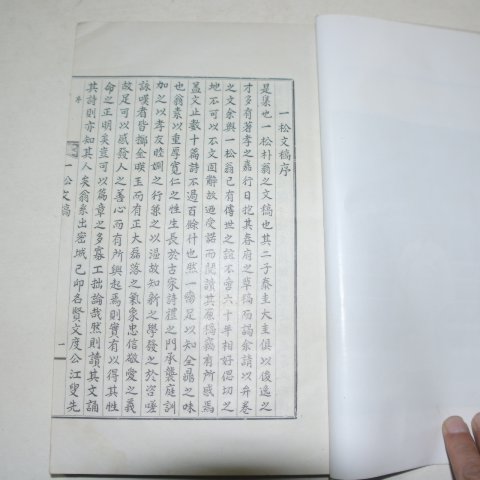 一松文稿序
是集也一松朴翁之文稿也其二子泰圭大圭俱以俊逸之
才多有著孝之嘉行日抱其春府之草稿而謁余請以弁卷
之文余與一松翁已有傳世之誼不啻六十年相好偲切之
地不可以不文固辭故遂受諾而閱讀其原稿竊有所感焉
盖文止數十篇詩不過百餘什也然一臠足以知全鼎之味
也翁素以重厚寬仁之性生長於古家詩禮之門承襲庭訓
加之以孝友睦婣之行兼之以溫故知新之學發之於咨嗟
詠嘆者皆擲金嘆玉而有正大磊落之氣象忠信敬愛之義
故足可以感發人之善心而有所興起焉則實有以得其性
命之正明矣豈可以篇章之多寡工拙論哉然則讀其文誦
其詩則亦知其人矣翁系出密城己卯名賢文度公江叟先
序
一松文稿
一